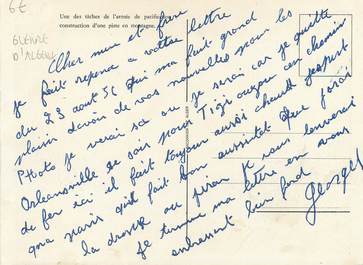 6€
GUERRE D'ALGERIE
Une des tâches de l'armée de pacification
construction d'une piste en montagne.
Cher mère et frère
je fait réponse a votre lettre
du 23 aout 56 qui ma fait grand
plaisir davoir de vos nouvelles pour les
Photo je verai sa ou je serai car je quitte
Orleansville se soir pour Tizi ouzou en chemin
de fer ici il fait toujour aussi chaud jespert
qua paris qu'il fait bon aussitot que jorai
la drosse ou piren K sous lenverai
Je termine ma lettre en vous
enbrassent bien ford
Georges